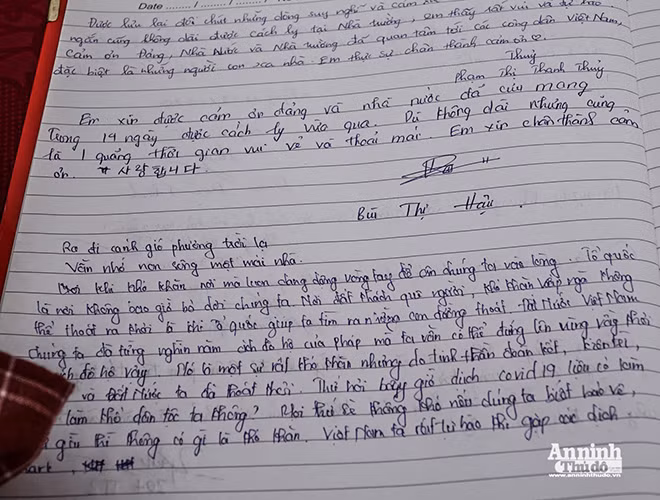 Date ....../....../......
Được lưu lại đôi chút những dòng suy nghĩ và cảm
ngắn cũng không dài được cách ly tại Nhà trường, em thấy rất vui và tự hào
Cảm ơn Đảng, Nhà Nước và Nhà trường đã quan tâm tới các công dân Việt Nam,
đặc biệt là những người con xa nhà. Em thực sự chân thành cảm ơn
Thuý
Phạm Thị Thanh Thuý
Em xin được cảm ơn đảng và nhà nước đã cưu mang
Trong 14 ngày được cách ly vừa qua. Dù không dài nhưng cũng
là 1 quãng thời gian vui vẻ và thoải mái. Em xin chân thành cảm
ơn. 사랑합니다.
Bùi Thị Hậu.
Ra đi canh gió phương trời lạ
Vẫn nhớ non sông một mái nhà.
khi khó khăn nơi mà luôn dang rộng vòng tay để đón chúng ta vào lòng. Tổ quốc
là nơi không bao giờ bỏ rơi chúng ta. Nơi đất khách quê người, khó khăn vấp ngã không
thể thoát ra khỏi thì Tổ quốc giúp ta tìm ra những con đường thoát. Đất nước Việt Nam
chúng ta đã từng nghìn năm đô hộ của pháp mà ta vẫn có thể đứng lên vùng vẫy khỏi
ách đô hộ vậy. Đó là một sự rất khó khăn nhưng do tinh thần đoàn kết, kiên trì,
và đất nước ta đã thoát khỏi. Thử hỏi bây giờ dịch covid 19 liệu có kìm
làm khó dân tộc ta không? sẽ không khó nếu chúng ta biết bảo vệ,
giữ gìn thì không có gì là khó khăn. Việt Nam ta rất tự hào khi gặp các dịch
Anninh
Thủđô
www.anninhthudo.vn